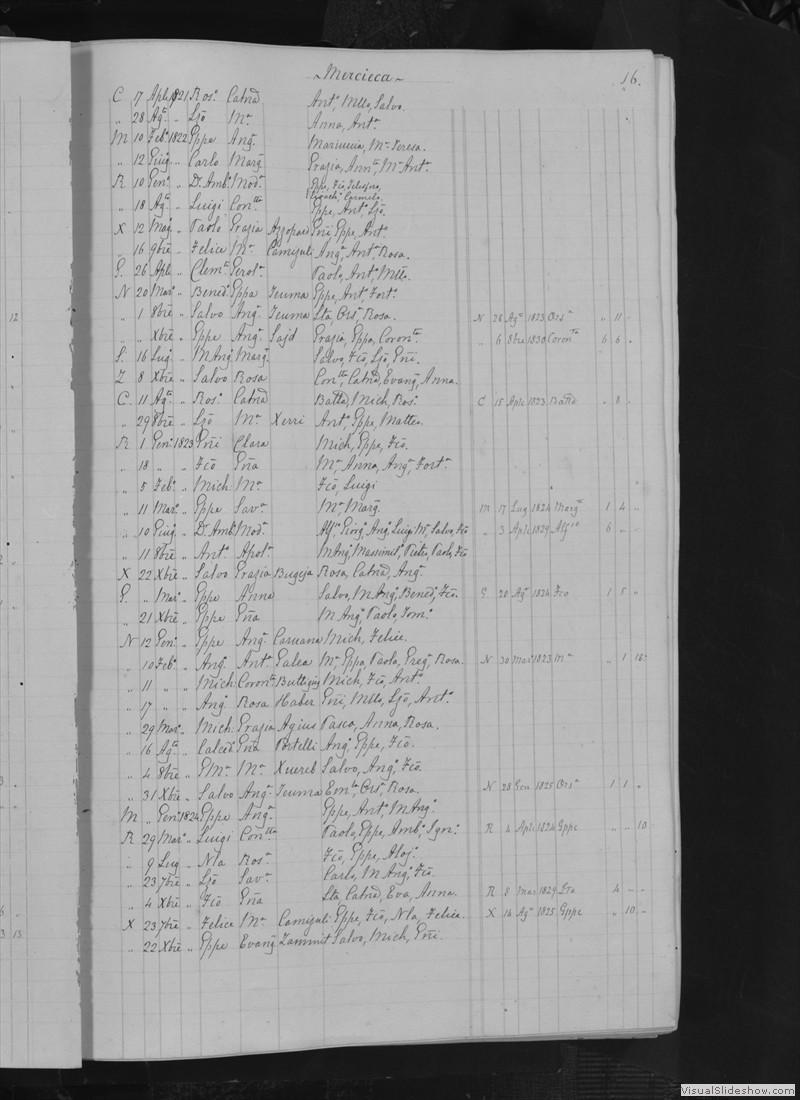 Mercieca 16.
C 17 Aple 1821 Ros.ª Catnã Ant.º Mllo, Salvo.
" 28 Ag.º " Ljõ M.ª Anna, Ant.ª
M 10 Feb.º 1822 Eppe Ang.ª Mariuccia, M.ª Teresa.
" 12 Giug. " Carlo Marg.ª Grazia, Ann.tª M.ª Ant.ª
R 10 Gen.º " D. Amb.º Mod.ª Eppe, Fcõ, Telesfora, Carmela.
" 18 Ag.º " Luigi Con.tta Eppe, Ant.º Ljõ.
X 12 Mag. " Paolo Grazia Azzopardi Eñi Eppe, Ant.º
16 9bre " Felice M.ª Camizuli Ang.º Ant.º Rosa.
G. 26 Aple " Clem.te Gerol.ª Paolo, Ant.º Mllo.
N 20 Mar.º " Bened.º Eppa Teuma Eppe, Ant.º Fort.º
" 1 8bre " Salvo Ang.ª Teuma Sta, Ors.ª Rosa. N 28 Ag.º 1823 Ors.ª " 11 "
" " Xbre " Eppe Ang.ª Sajd Grazia, Eppa, Coron.ta " 6 8bre 1830 Coron.ta 6 6 "
S. 16 Lug. " M Ang. Marg.ª Salvo, Fcõ, Ljõ, Eñi.
Z 8 Xbre " Salvo Rosa Con.tta Catnã, Evang.ª Anna.
C. 11 Ag.º " Ros.º Catnã Batta, Mich, Ros.º C 15 Aple 1823 Batta " 8 "
" 29 8bre " Ljõ M.ª Xerri Ant.º, Eppe, Matteo.
R 1 Gen.º 1823 Eñi Clara Mich, Eppe, Fcõ.
" 18 " " Fcõ Eña M.ª Anna, Ang.ª Fort.ª
" 5 Feb.º " Mich M.ª Fcõ, Luigi
" 11 Mar.º " Eppe Sav.ª M.ª Marg.ª M 17 Lug 1824 Marg.ª 1 4 "
" 10 Giug. " D. Amb.º Mod.ª Alf.so Giorg.º Ang.º Luigi M.ª Salvo, Fcõ " 3 Aple 1829 Alf.so 6 " "
" 11 8bre " Ant.º Apol.ª M Ang.º Massimil.º Pietro, Paolo, Fcõ
X 22 Xbre " Salvo Grazia Bugeja Rosa, Catnã, Ang.ª
G. " Mar.º " Eppe Anna Salvo, M Ang.º Bened.º Fcõ. G 20 Ag.º 1824 Fco 1 5 "
" 21 Xbre " Eppe Eña M Ang.º Paolo, Tom.º
N 12 Gen.º " Eppe Ang.ª Caruana Mich, Felice.
" 10 Feb.º " Ang.º Ant.ª Galea M.ª Eppa, Paola, Greg.º Rosa. N 30 Mar. 1823 M.ª " 1 16
" 11 " " Mich Coron.ta Buttigieg Mich, Fcõ, Ant.º
" 17 " " Ang.º Rosa Haber Eñi, Mllo, Ljõ, Ant.º
" 29 Mar.º " Mich Grazia Agius Pasco, Anna, Rosa.
" 16 Ag.º " Calced.º Eña Portelli Ang.º Eppe, Fcõ.
" 4 8bre " G M.ª M.ª Xuereb Salvo, Ang.º Fcõ.
" 31 Xbre " Salvo Ang.ª Teuma Em.la Ors.ª Rosa. N 28 Gen 1825 Ors.ª 1 1 "
M " Gen.º 1824 Eppe Ang.ª Eppe, Ant.º M Ang.º
R 29 Mar.º " Luigi Con.tta Paolo, Eppe, Amb.º Ign.º R 4 Aple 1824 Gppe " " 10
" 9 Lug " Nla Ros.ª Fcõ, Eppe, Aloj.
" 23 7bre " Ljõ Sav.ª Carlo, M Ang.º Fcõ.
" 4 Xbre " Fcõ Eña Sta Catnã, Eva, Anna. R 8 Mar 1829 4 " "
X 23 7bre " Felice M.ª Camizuli Eppe, Fcõ, Nla, Felice. X 14 Ag.º 1825 Gppe " 10 "
" 22 Xbre " Eppe Evang.ª Zammit Salvo, Mich, Eñi.
12
3 13
VisualSlideshow.com